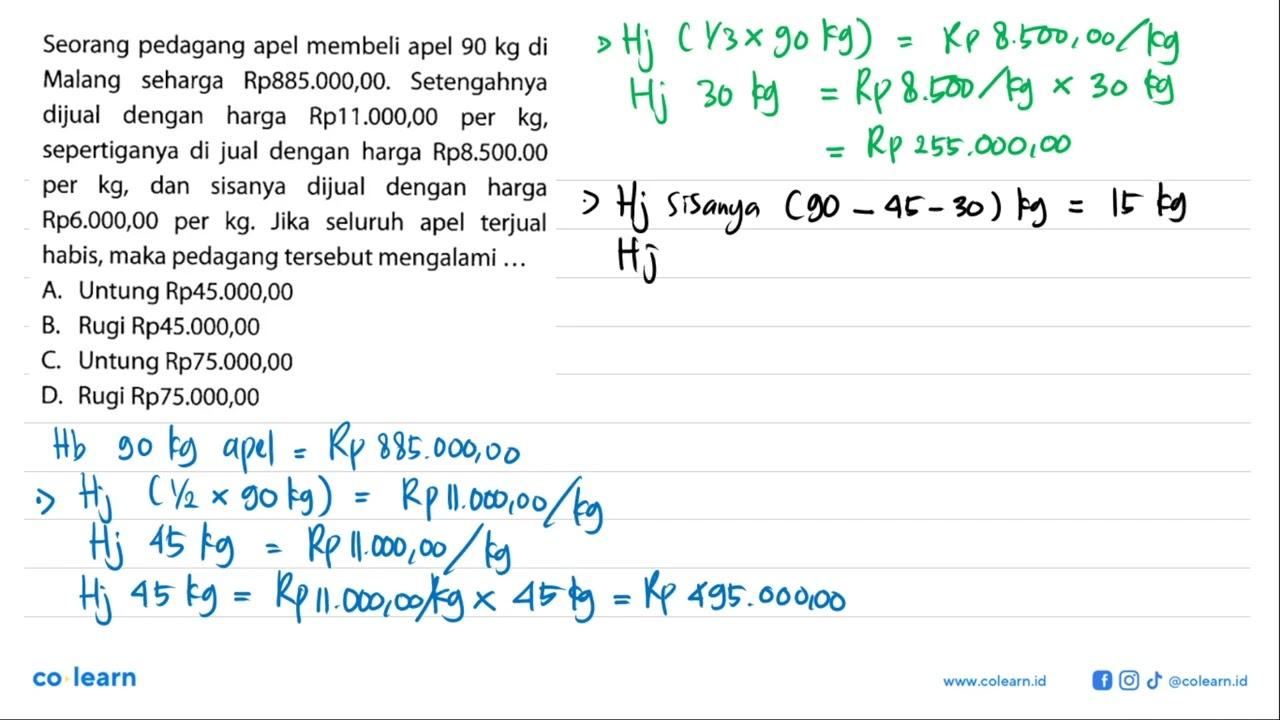 Seorang pedagang apel membeli apel 90 kg di
Malang seharga Rp885.000,00. Setengahnya
dijual dengan harga Rp11.000,00 per kg,
sepertiganya di jual dengan harga Rp8.500.00
per kg, dan sisanya dijual dengan harga
Rp6.000,00 per kg. Jika seluruh apel terjual
habis, maka pedagang tersebut mengalami ...
A. Untung Rp45.000,00
B. Rugi Rp45.000,00
C. Untung Rp75.000,00
D. Rugi Rp75.000,00
Hb 90 kg apel = Rp 885.000,00
:> Hj (1/2 × 90 kg) = Rp 11.000,00/kg
Hj 45 kg = Rp 11.000,00/kg
Hj 45 kg = Rp 11.000,00/kg × 45 kg = Rp 495.000,00
:> Hj (1/3 × 90 kg) = Rp 8.500,00/kg
Hj 30 kg = Rp 8.500/kg × 30 kg
= Rp 255.000,00
:> Hj sisanya (90 - 45 - 30) kg = 15 kg
Hj
co learn
www.colearn.id
@colearn.id